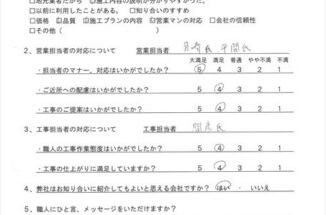 □地元業者だから □施工内容の説明が分かりやすかった。
□以前に利用したことがある。 □知り合いのすすめ
□価格 ☑品質 ☑施工プランの内容 ☑営業マンの対応 □会社の信頼性
□その他( )
2、営業担当者の対応について 営業担当者 氏 氏
大満足 満足 普通 やや不満 不満
・担当者のマナー、対応はいかがでしたか? 5 4 3 2 1
・ご近所への配慮はいかがでしたか? 5 4 3 2 1
・工事のご提案はいかがでしたか? 5 4 3 2 1
3、工事担当者の対応について 工事担当者 氏
・職人の工事作業態度はいかがでしたか? 5 4 3 2 1
・工事の仕上がりに満足していますか? 5 4 3 2 1
4、弊社はお知り合いに紹介してもよいと思える会社ですか? はい ・ いいえ
5、職人にひと言、メッセージをいただけますか?